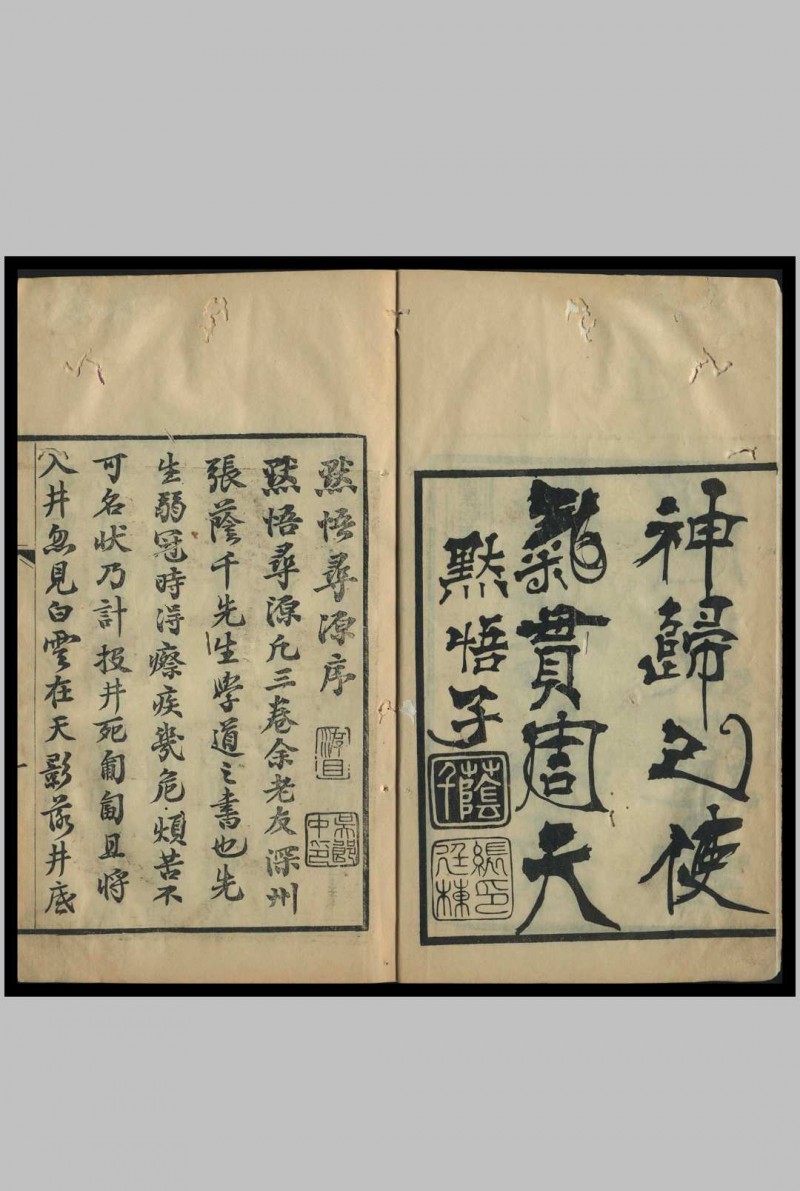 神歸心使
氣貫周天
默悟子
蔭千
張印廷棟
默悟尋源序
默悟尋源凢三卷余老友深州
張蔭千先生學道之書也先
生弱冠時淂瘵疾幾危煩苦不
可名狀乃計投井死匍匐且將
入井忽見白雲在天影落井底